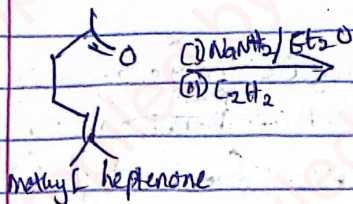 (i) NaNH₂ / Et₂O
O
(ii) C₂H₂
methyl heptenone